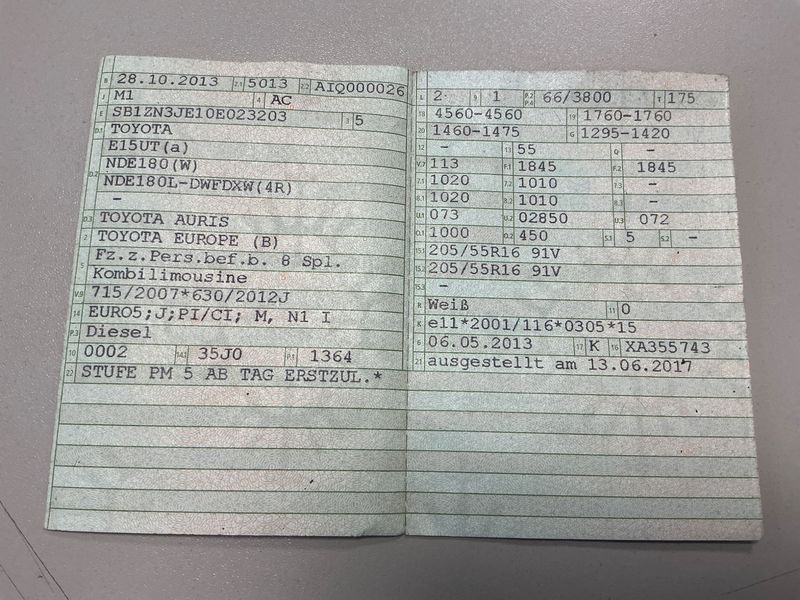 B 28.10.2013 2.1 5013 2.2 AIQ000026
J M1 4 AC
E SB1ZN3JE10E023203 3 5
D.1 TOYOTA
E15UT(a)
D.2 NDE180(W)
NDE180L-DWFDXW(4R)
-
D.3 TOYOTA AURIS
2 TOYOTA EUROPE (B)
5 Fz.z.Pers.bef.b. 8 Spl.
Kombilimousine
V.9 715/2007*630/2012J
14 EURO5;J;PI/CI; M, N1 I
P.3 Diesel
10 0002 14.1 35J0 P.1 1364
22 STUFE PM 5 AB TAG ERSTZUL.*
L 2 9 1 P.2 P.4 66/3800 T 175
18 4560-4560 19 1760-1760
20 1460-1475 G 1295-1420
12 - 13 55 Q -
V.7 113 F.1 1845 F.2 1845
7.1 1020 7.2 1010 7.3 -
8.1 1020 8.2 1010 8.3 -
U.1 073 U.2 02850 U.3 072
O.1 1000 O.2 450 S.1 5 S.2 -
15.1 205/55R16 91V
15.2 205/55R16 91V
15.3 -
R Weiß 11 0
K e11*2001/116*0305*15
6 06.05.2013 17 K 16 XA355743
21 ausgestellt am 13.06.2017